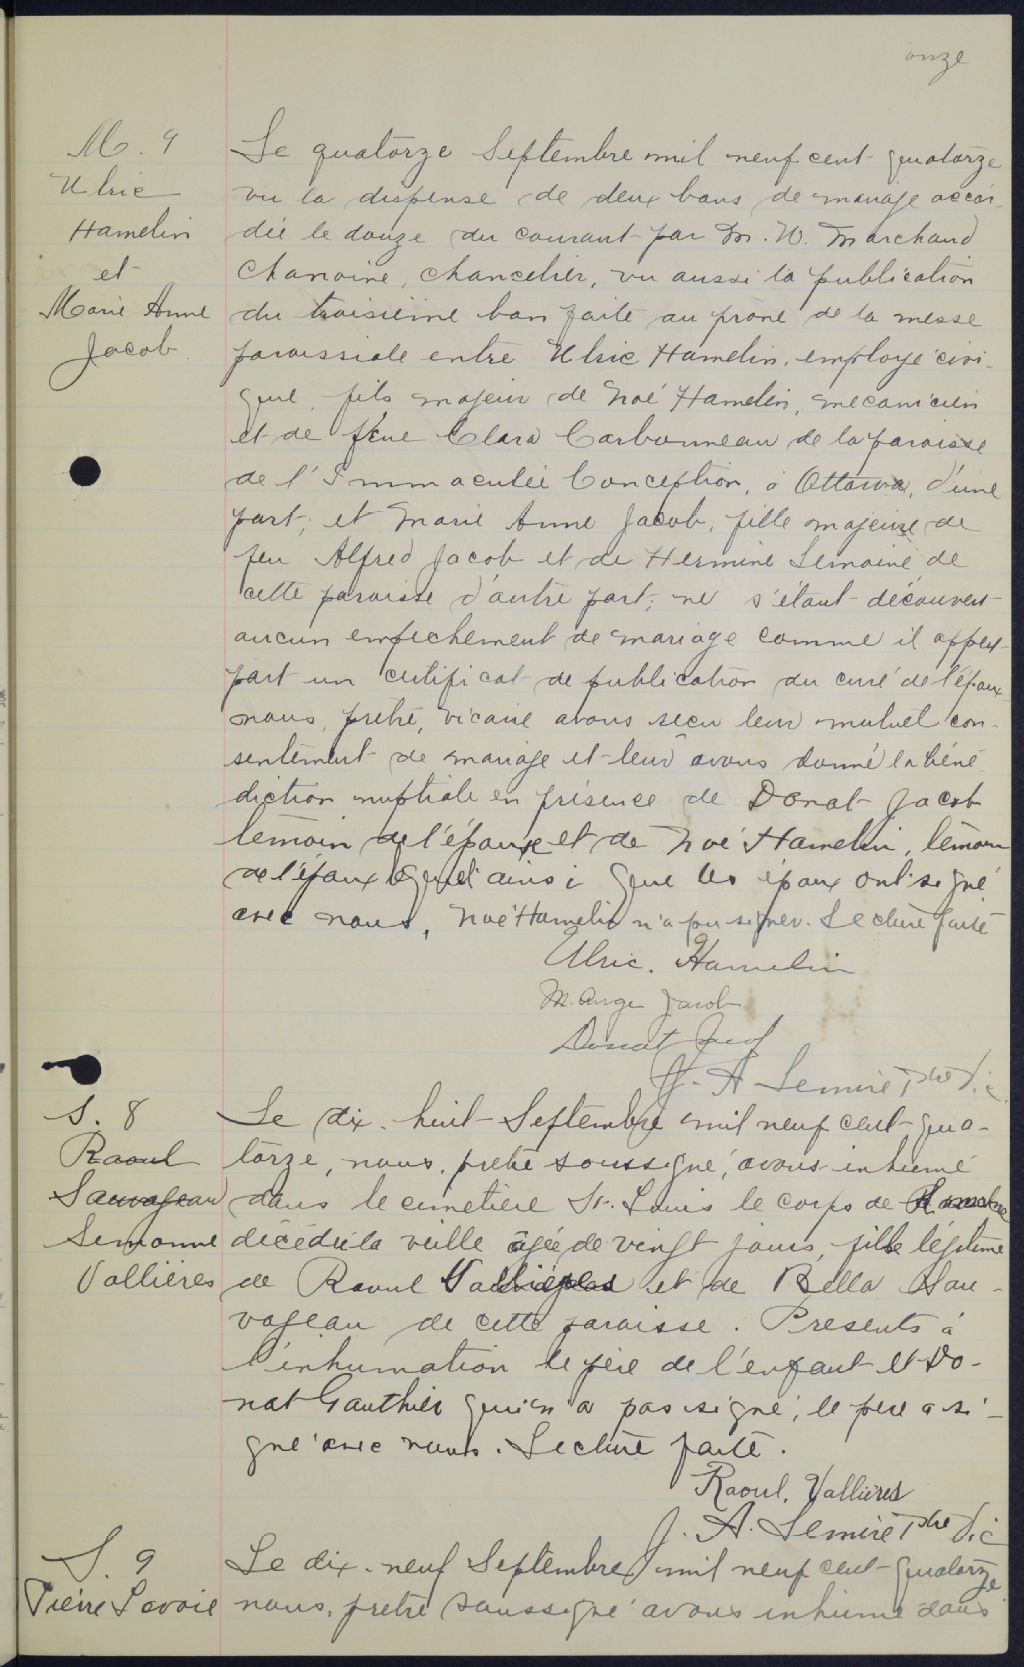 onze
M. 9
Ulric
Hamelin
et
Marie Anne
Jacob.
Le quatorze Septembre mil neuf cent quatorze
vu la dispense de deux bans de mariage accor-
dée le douze du courant par M. W. Marchand
Chanoine, chancelier, vu aussi la publication
du troisième ban faite au prône de la messe
paroissiale entre Ulric Hamelin, employé civi-
que, fils majeur de Noé Hamelin, mecanicien
et de feue Clara Carbonneau de la paroisse
de l'Immaculée Conception, à Ottawa, d'une
part; et Marie Anne Jacob, fille majeure de
feu Alfred Jacob et de Hermine Lemoine de
cette paroisse d'autre part; ne s'étant découvert
aucun empechement de mariage comme il appert
part un certificat de publication du curé de l'époux
nous, prêtre, vicaire avons reçu leur mutuel con-
sentement de mariage et leur avons donné la béné
diction nuptiale en présence de Donat Jacob
temoin de l'épouse et de Noé Hamelin, témoin
de l'époux ainsi que les époux ont signé
avec nous, Noé Hamelin n'a pu signer. Lecture faite
Ulric. Hamelin
M. Ange Jacob
Donat Jacob
J. A. Lemire Ptre Vic.
S. 8
Raoul
Sauvageau
Simonne
Vallières
Le dix-huit Septembre mil neuf cent qua-
torze, nous, pretre soussigné, avons inhumé
dans le cimetière St. Louis le corps de
décédée la veille âgée de vingt jours, fille légitime
de Raoul Vallières et de Bella Sau-
vageau de cette paroisse. Presents à
l'inhumation le père de l'enfant et Do-
nat Gauthier qui n'a pas signé; le père a si-
gné avec nous. Lecture faite.
Raoul. Vallieres
J. A. Lemire Ptre Vic
S. 9
Pierre Lavoie
Le dix-neuf Septembre mil neuf cent quatorze
nous, pretre soussigné avons inhumé dans